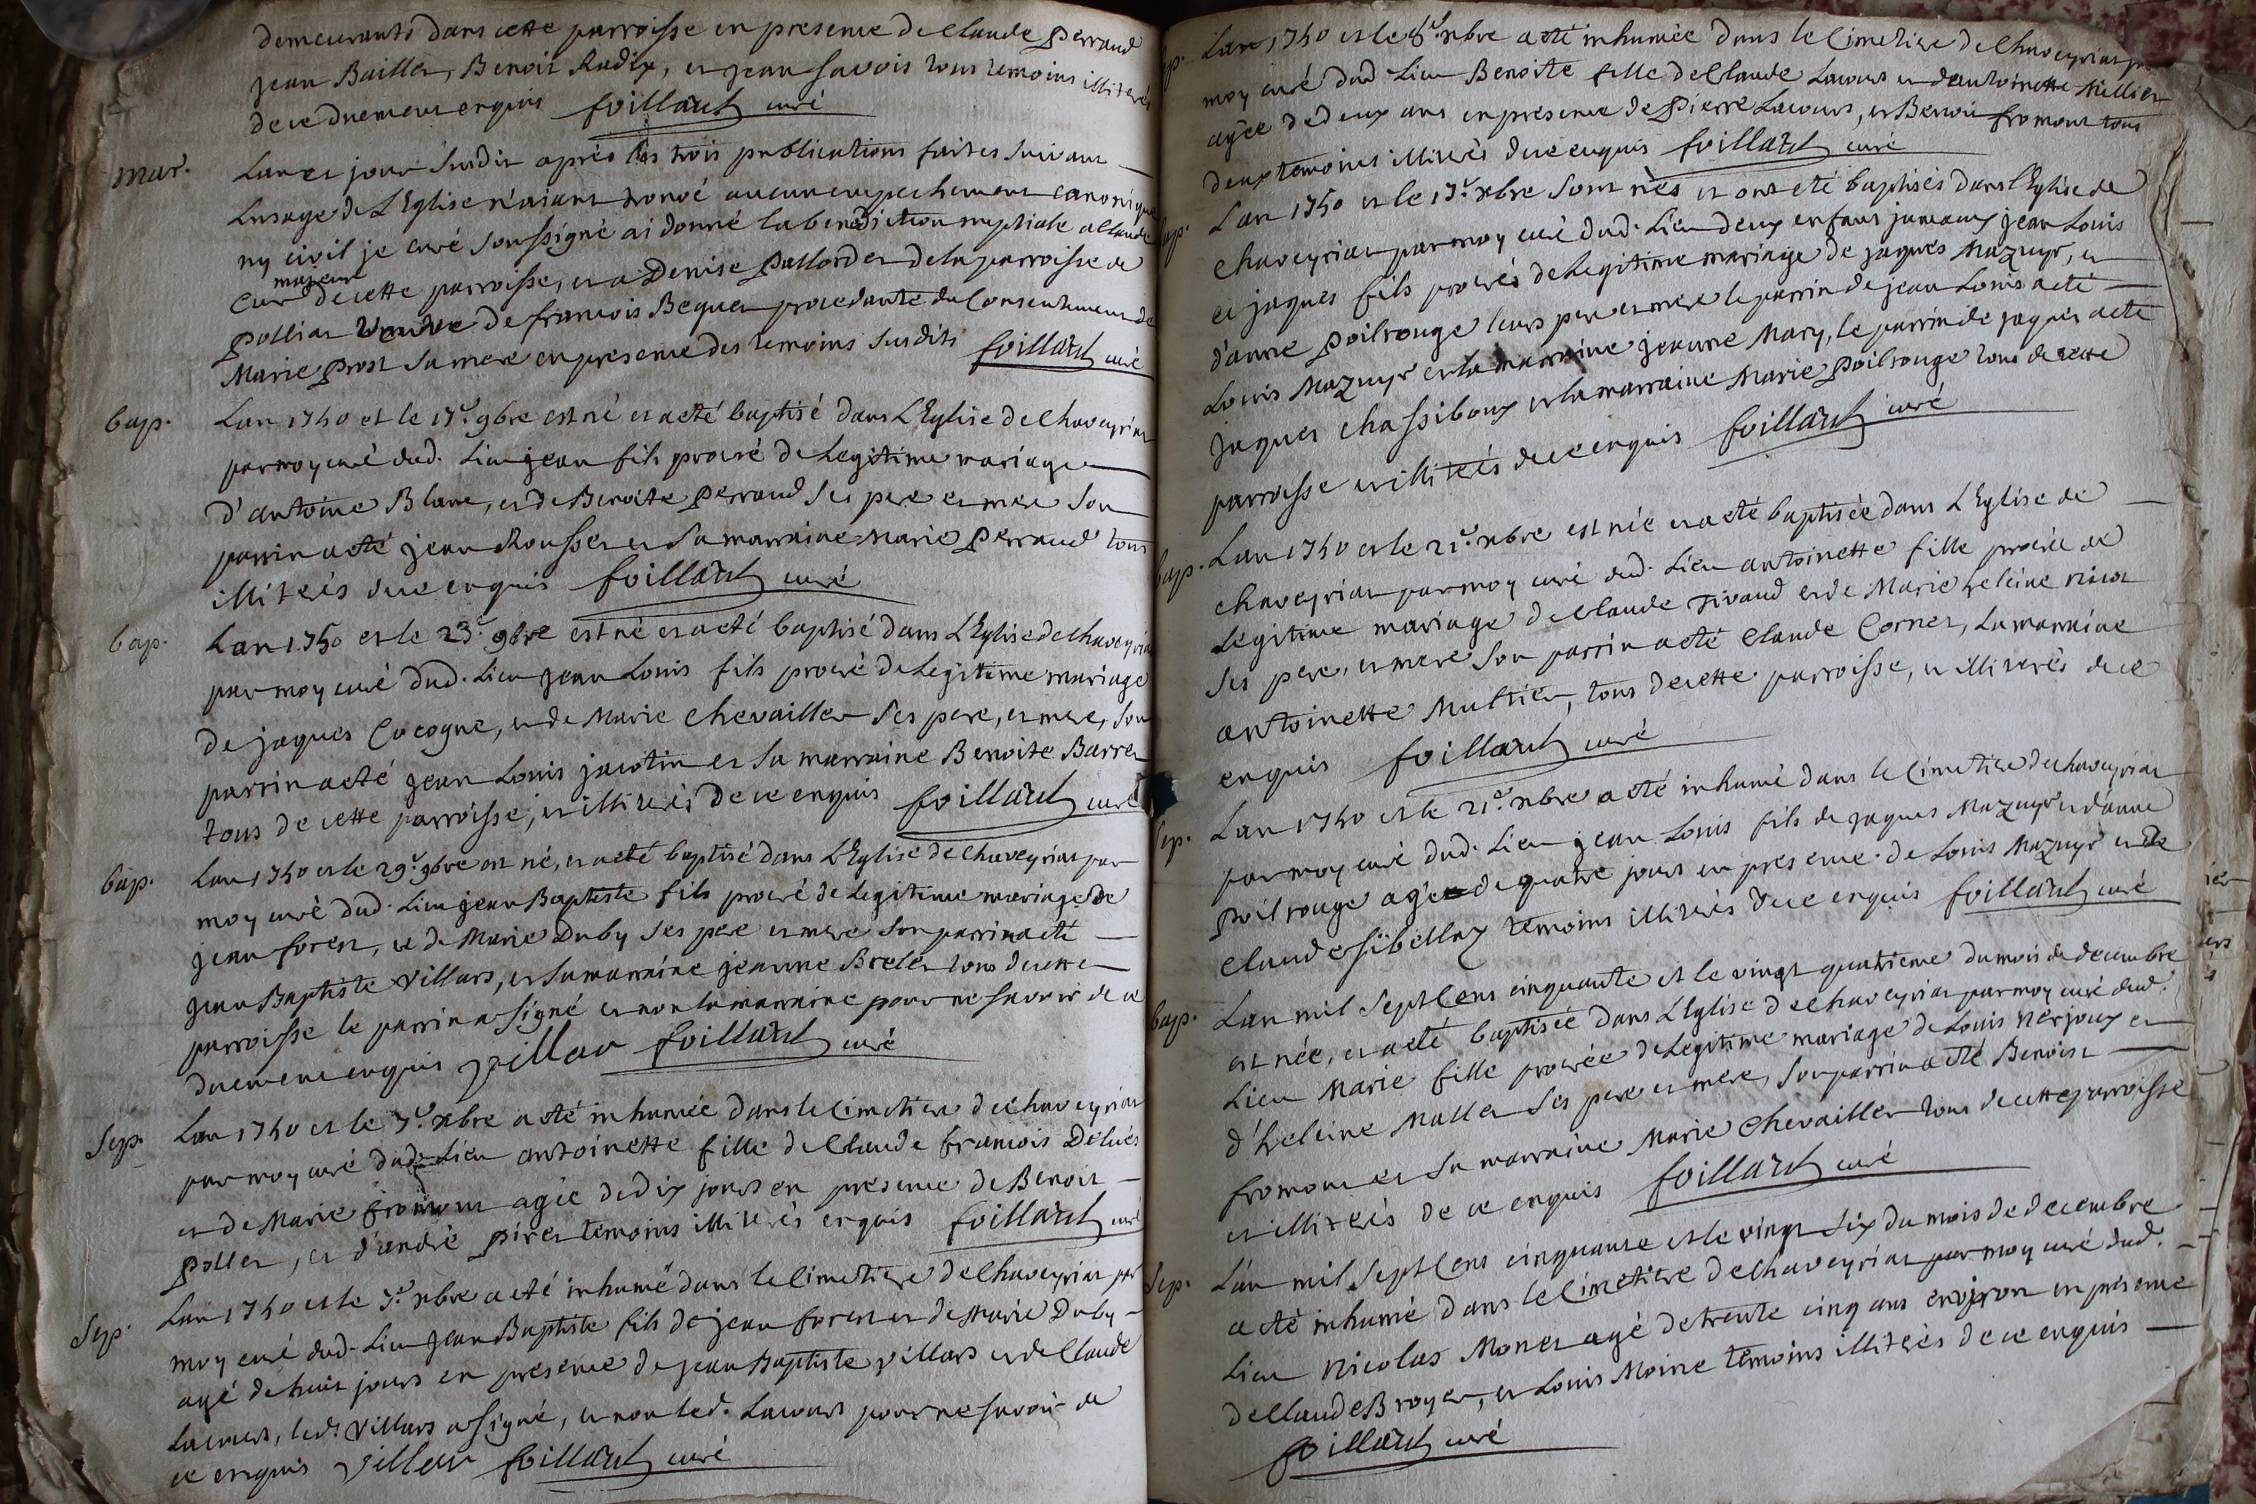 demeurants dans cette parroisse en presence de Claude Perraud
jean Bailler, Benoit Rudix, et jean Savois tous temoins illiterés
de ce duement enquis foillard curé
mar. L'an et jour susdit aprés les trois publications faites suivant
L'usage de L'Eglise n'aiant trouvé aucun empechement canonique
ny civil je curé soussigné ai donné la benediction nuptiale a Claude
majeur
de cette parroisse, et a Denise Pallordet de la parroisse de
Polliat veuve de francois Bequet procedante du Consentement de
Marie Prost sa mere en presence des temoins susdits foillard curé
bap. L'an 1750 et le 17e. 9bre est né et a eté baptisé dans L'Eglise de Chaveyriat
par moy curé dud. Lieu jean fils procréé de Legitime mariage
d'antoine Blanc, et de Benoite Perraud ses pere et mere son
parrin a eté jean Rousset et sa marraine Marie Perraud tous
illiterés de ce enquis foillard curé
bap. L'an 1750 et le 23e. 9bre est né et a eté baptisé dans L'Eglise de Chaveyriat
par moy curé dud. Lieu jean Louis fils procréé de Legitime mariage
de jaques Cocogne, et de Marie Chevailler ses pere, et mere, son
parrin a eté jean Louis jacotin et sa marraine Benoite Barret
tous de cette parroisse, et illiterés de ce enquis foillard curé
bap. L'an 1750 et le 29e. 9bre est né, et a eté baptisé dans L'Eglise de Chaveyriat par
moy curé dud. Lieu jean Baptiste fils procréé de Legitime mariage de
jean forest, et de Marie Duby ses pere et mere son parrin a eté
jean Baptiste Villars, et sa marraine jeanne Brelet tous de cette
parroisse le parrin a signé et non la marraine pour ne savoir de ce
duement enquis Villar foillard curé
Sep. L'an 1750 et le 7e. xbre a eté inhumée dans le Cimetiere de Chaveyriat
par moy curé dud. Lieu antoinette fille de Claude francois Delués
et de Marie fromont agée de dix jours en presence de Benoit
Pollet, et d'andré Piret temoins illiterés enquis foillard curé
Sep. L'an 1750 et le 7e. xbre a eté inhumé dans le Cimetiere de Chaveyriat par
moy curé dud. Lieu jean Baptiste fils de jean forest et de Marie Duby
agé de huit jours en presence de jean Baptiste Villars et de Claude
Lacours, led. Villars a signé, et non led. Lacours pour ne savoir de
ce enquis Villar foillard curé
L'an 1750 et le xbre a eté inhumée dans le Cimetiere de Chaveyriat par
moy curé dud. Lieu Benoite fille de Claude Lacours et d'antoinette Mullier
agée de deux ans en presence de Pierre Lacours, et Benoit fromont tous
deux temoins illiterés de ce enquis foillard curé
bap. L'an 1750 et le 17e. xbre sont nés et ont eté baptisés dans L'Eglise de
Chaveyriat par moy curé dud. Lieu deux enfans jumeaux jean Louis
et jaques fils procréés de Legitime mariage de jaques Mazuyr, et
d'anne Poilrouge leurs pere et mere le parrin de jean Louis a eté
Louis Mazuyr et la marraine jeanne Mary, le parrin de jaques a eté
jaques Chassiboux et la marraine Marie Poilrouge tous de cette
parroisse et illiterés de ce enquis foillard curé
bap. L'an 1750 et le 21e. xbre est née et a eté baptisée dans L'Eglise de
Chaveyriat par moy curé dud. Lieu antoinette fille procréée de
Legitime mariage de Claude Tivaud et de Marie heleine
ses pere, et mere son parrin a eté Claude Cornet, La marraine
antoinette Multier, tous de cette parroisse, et illiterés de ce
enquis foillard curé
Sep. L'an 1750 et le 21e. xbre a eté inhumé dans le Cimetiere de Chaveyriat
par moy curé dud. Lieu jean Louis fils de jaques Mazuyr et d'anne
Poilrouge agé de quatre jours en presence de Louis Mazuyr et de
Claude Sibellas temoins illiterés de ce enquis foillard curé
bap. L'an mil Sept Cens cinquante et le vingt quatrieme du mois de decembre
est née, et a eté baptisée dans L'Eglise de Chaveyriat par moy curé dud.
Lieu Marie fille procréée de Legitime mariage de Louis Nerjoux et
d'heleine Mallet ses pere et mere, son parrin a eté Benoist
fromont et sa marraine Marie Chevailler tous de cette parroisse
et illiterés de ce enquis foillard curé
Sep. L'an mil Sept Cens cinquante et le vingt six du mois de decembre
a eté inhumé dans le Cimetiere de Chaveyriat par moy curé dud.
Lieu Nicolas Monet agé de trente cinq ans environ en presence
de Claude Broyer, et Louis Moine temoins illiterés de ce enquis
foillard curé